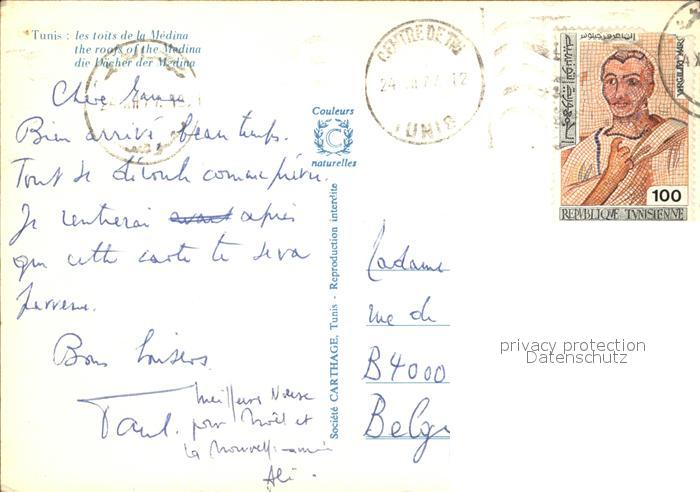 Tunis : les toits de la Médina
the roofs of the Medina
die Dächer der Medina
Chère
Bien arrivé beau temps.
Tout se déroule comme prévu.
Je rentrerai avant après
que cette carte te sera
parvenue.
Bons baisers
Paul.
Meilleurs Vœux
pour Noël et
la nouvelle année
Ali.
Couleurs
C
naturelles
Société CARTHAGE, Tunis - Reproduction interdite
CENTRE DE TRI
TUNIS
VIRGILE
100
REPUBLIQUE TUNISIENNE
Madame
rue de
B4000
Belgi
privacy protection
Datenschutz